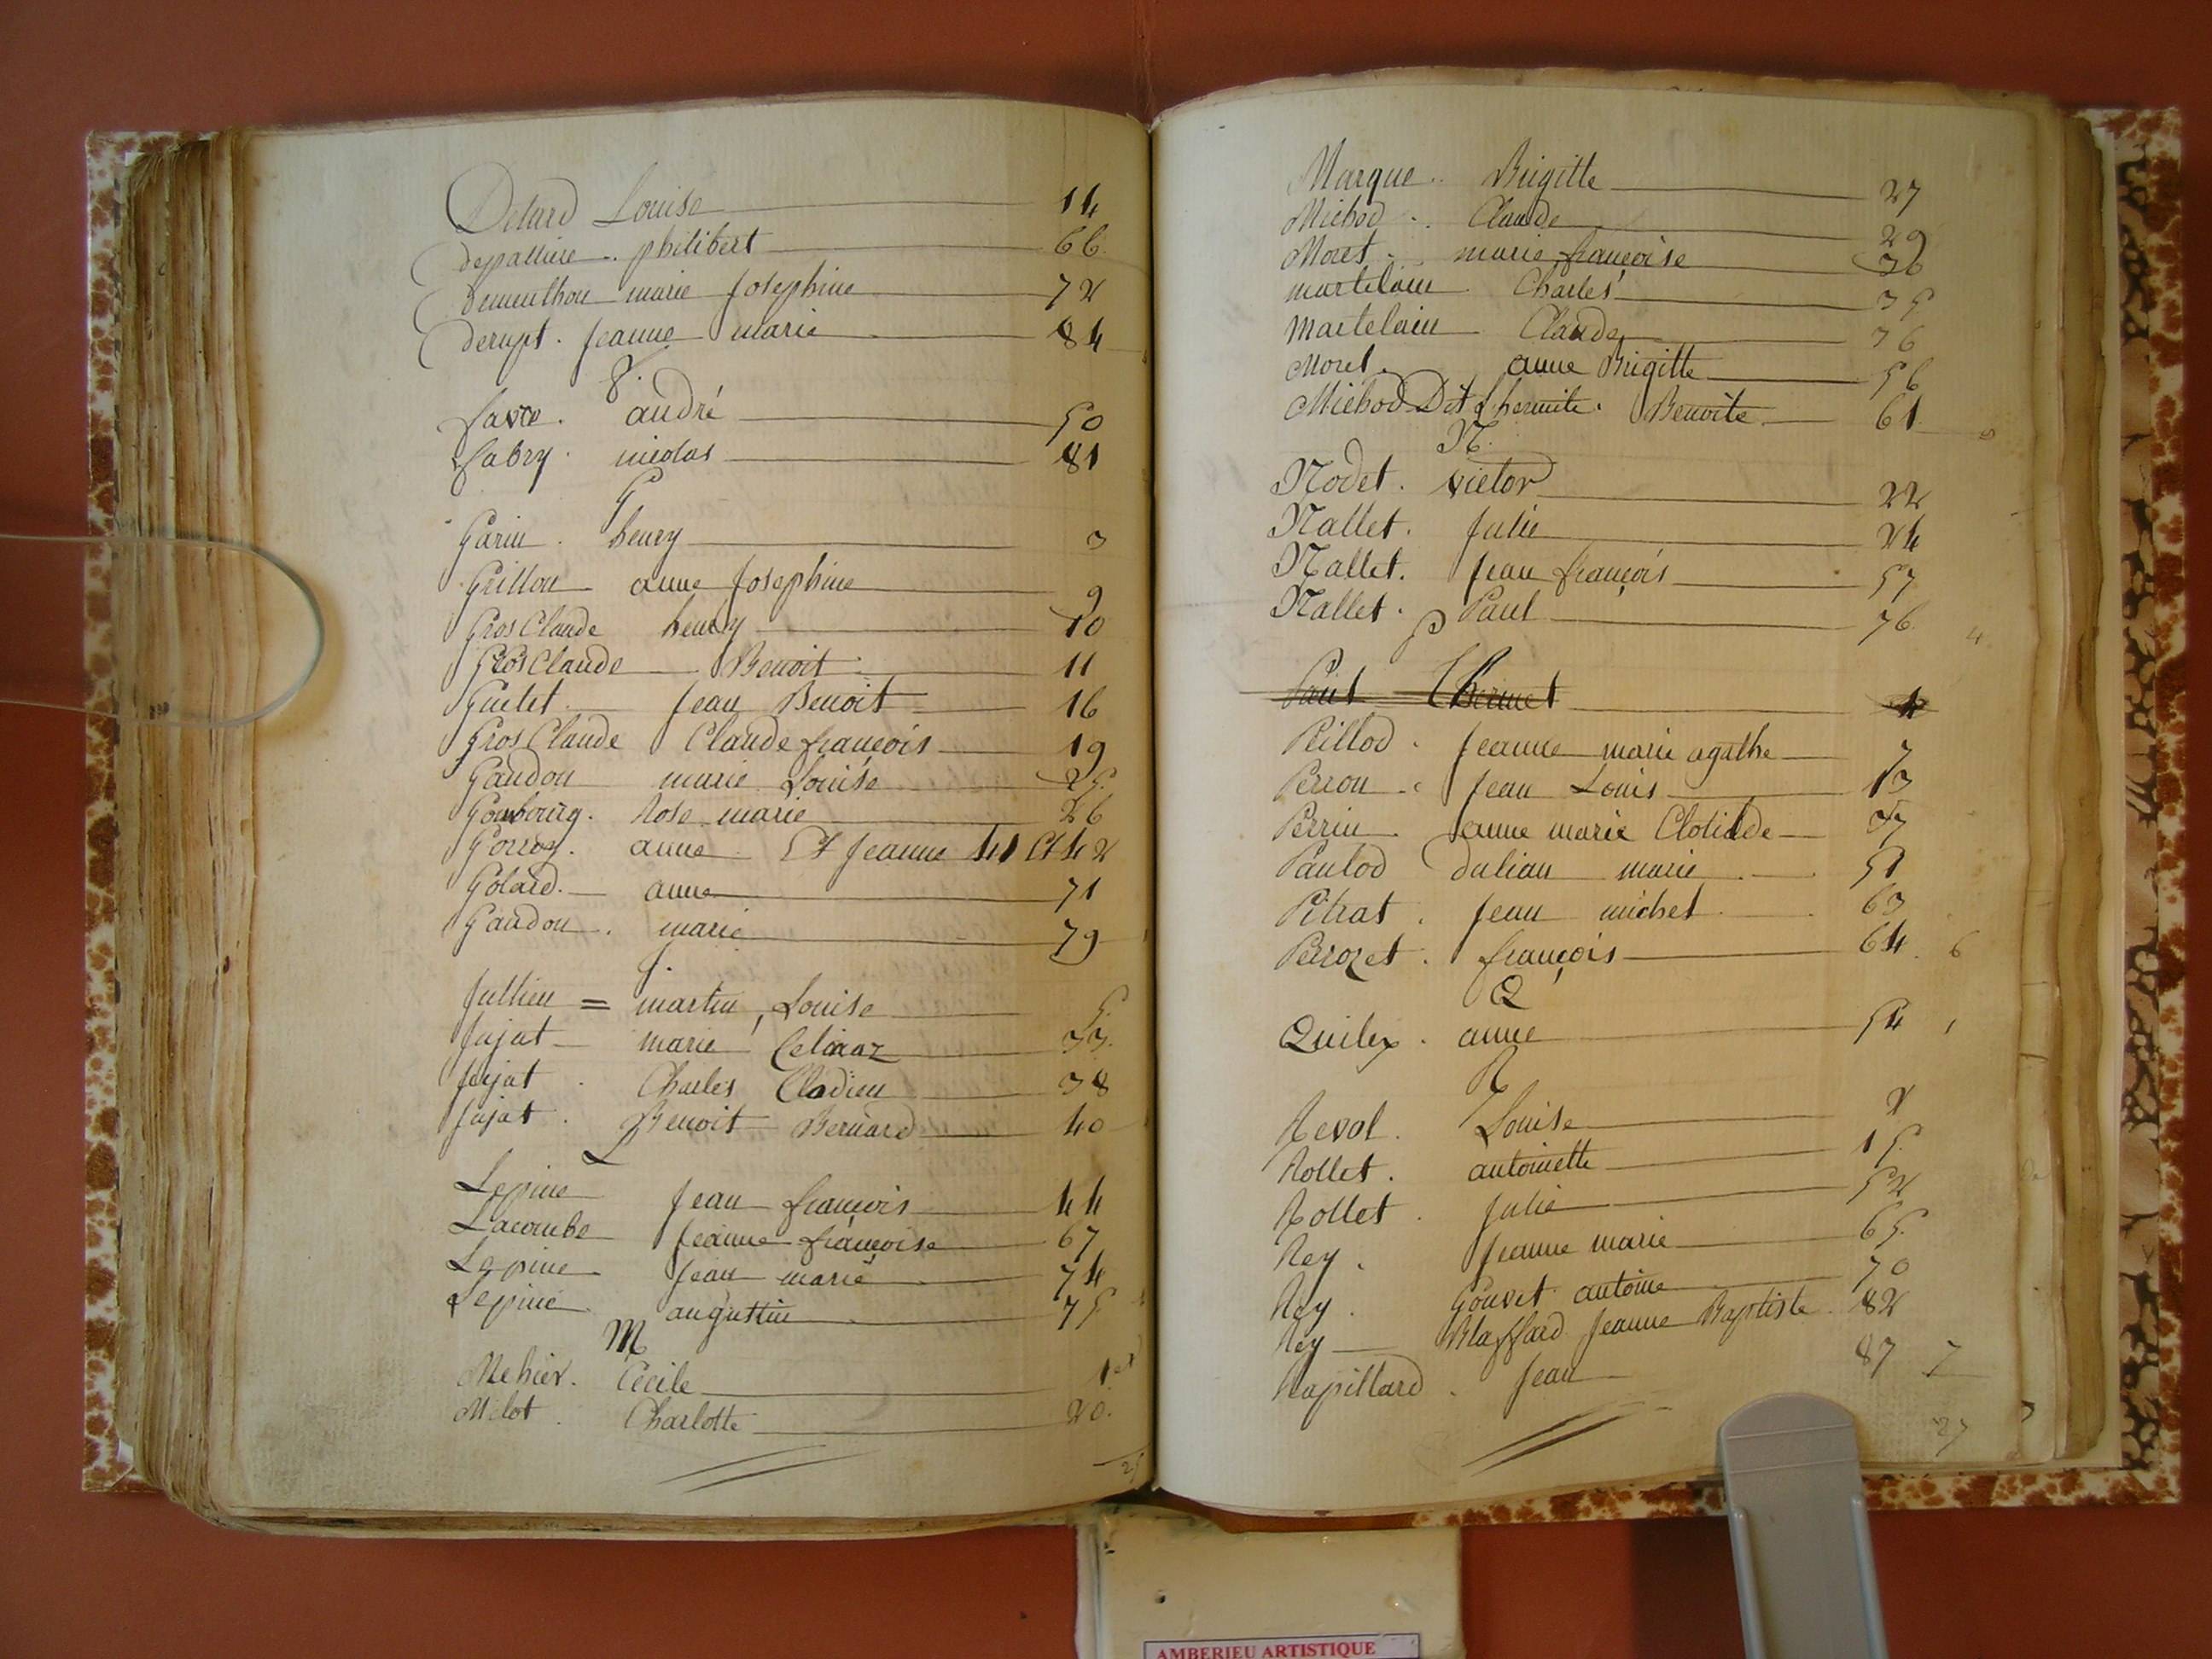 Delard Louise 14
depalliere. philibert 66
dementhon marie Josephine 72
derupt. Jeanne marie 84
F.
favre. andré 50
fabry. nicolas 81
G
Garin. henry 3
Grillon anne Josephine 9
Gros Claude henry 10
Gros Claude Benoit 11
Guetet. Jean Benoit 16
Gros Claude Claude françois 19
Gaudon marie Louise 25.
Rose marie 26
Gorroz. anne Et Jeanne 41 Et 42
Golard. anne 71
Gaudon. marie 79
J.
Jullien = martin, Louise 5.
Jujat marie 33.
Jujat. Charles Cladieu 38
Jujat. Benoit Bernard 40
L
Lepine Jean françois 44
Lacombe Jeanne françoise 67
Lepine Jean marie 74
Lepine augustin 75
M
Mehier. Cécile 1er
Milot. Charlotte 20.
25
Marque.. Brigitte 27
Michod. Claude 29
Moret. marie françoise 36
martelain. Charles 35
Martelain Claude 36
Moret. anne Brigitte 56
Michod Dit Lhermite. Benoite 61.
N.
Nodet. victor 22
Nallet. Julie 24
Nallet. Jean françois 57
Nallet. Paul 76. 4
P
Paul Thermet 4
Peillod. Jeanne marie agathe 7
Perron. Jean Louis 13
Perrin. anne marie Clotilde 37
Paulod Dalian marie 51
Pitrat. Jean michel 63
Perrozet. françois 64. 6
Q
Quilex. anne 54 1
R
Revol. Louise 2
Rollet. antoinette 15.
Rollet. Julie 52
Rey. Jeanne marie 65.
Rey. Gouvet antoine 70
Rey Blaffard Jeanne Baptiste. 82
Rapillard. Jean 87 7
27
AMBERIEU ARTISTIQUE